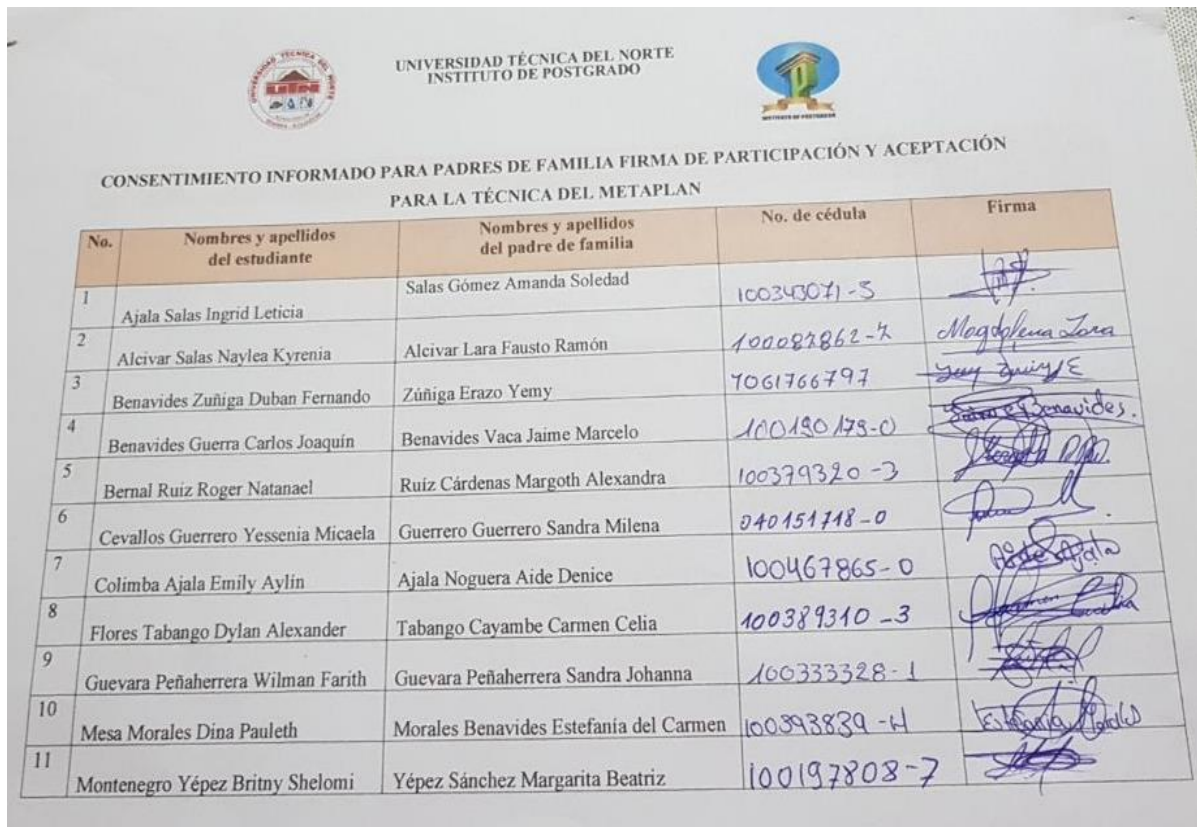 UNIVERSIDAD TÉCNICA DEL NORTE
INSTITUTO DE POSTGRADO
UNIVERSIDAD TECNICA DEL NORTE
UTN
INSTITUTO DE POSTGRADO
CONSENTIMIENTO INFORMADO PARA PADRES DE FAMILIA FIRMA DE PARTICIPACIÓN Y ACEPTACIÓN
PARA LA TÉCNICA DEL METAPLAN
No. Nombres y apellidos del estudiante Nombres y apellidos del padre de familia No. de cédula Firma
1 Ajala Salas Ingrid Leticia Salas Gómez Amanda Soledad 100343071-5
2 Alcivar Salas Naylea Kyrenia Alcivar Lara Fausto Ramón 100087862-7 Magdalena Lara
3 Benavides Zuñiga Duban Fernando Zúñiga Erazo Yemy 1061766797
4 Benavides Guerra Carlos Joaquín Benavides Vaca Jaime Marcelo 100190179-0 Benavides.
5 Bernal Ruiz Roger Natanael Ruíz Cárdenas Margoth Alexandra 100379320-3
6 Cevallos Guerrero Yessenia Micaela Guerrero Guerrero Sandra Milena 040151718-0
7 Colimba Ajala Emily Aylín Ajala Noguera Aide Denice 100467865-0 Ajala
8 Flores Tabango Dylan Alexander Tabango Cayambe Carmen Celia 100389310-3
9 Guevara Peñaherrera Wilman Farith Guevara Peñaherrera Sandra Johanna 100333328-1
10 Mesa Morales Dina Pauleth Morales Benavides Estefanía del Carmen 100393839-4 Estefania
11 Montenegro Yépez Britny Shelomi Yépez Sánchez Margarita Beatriz 100197808-7